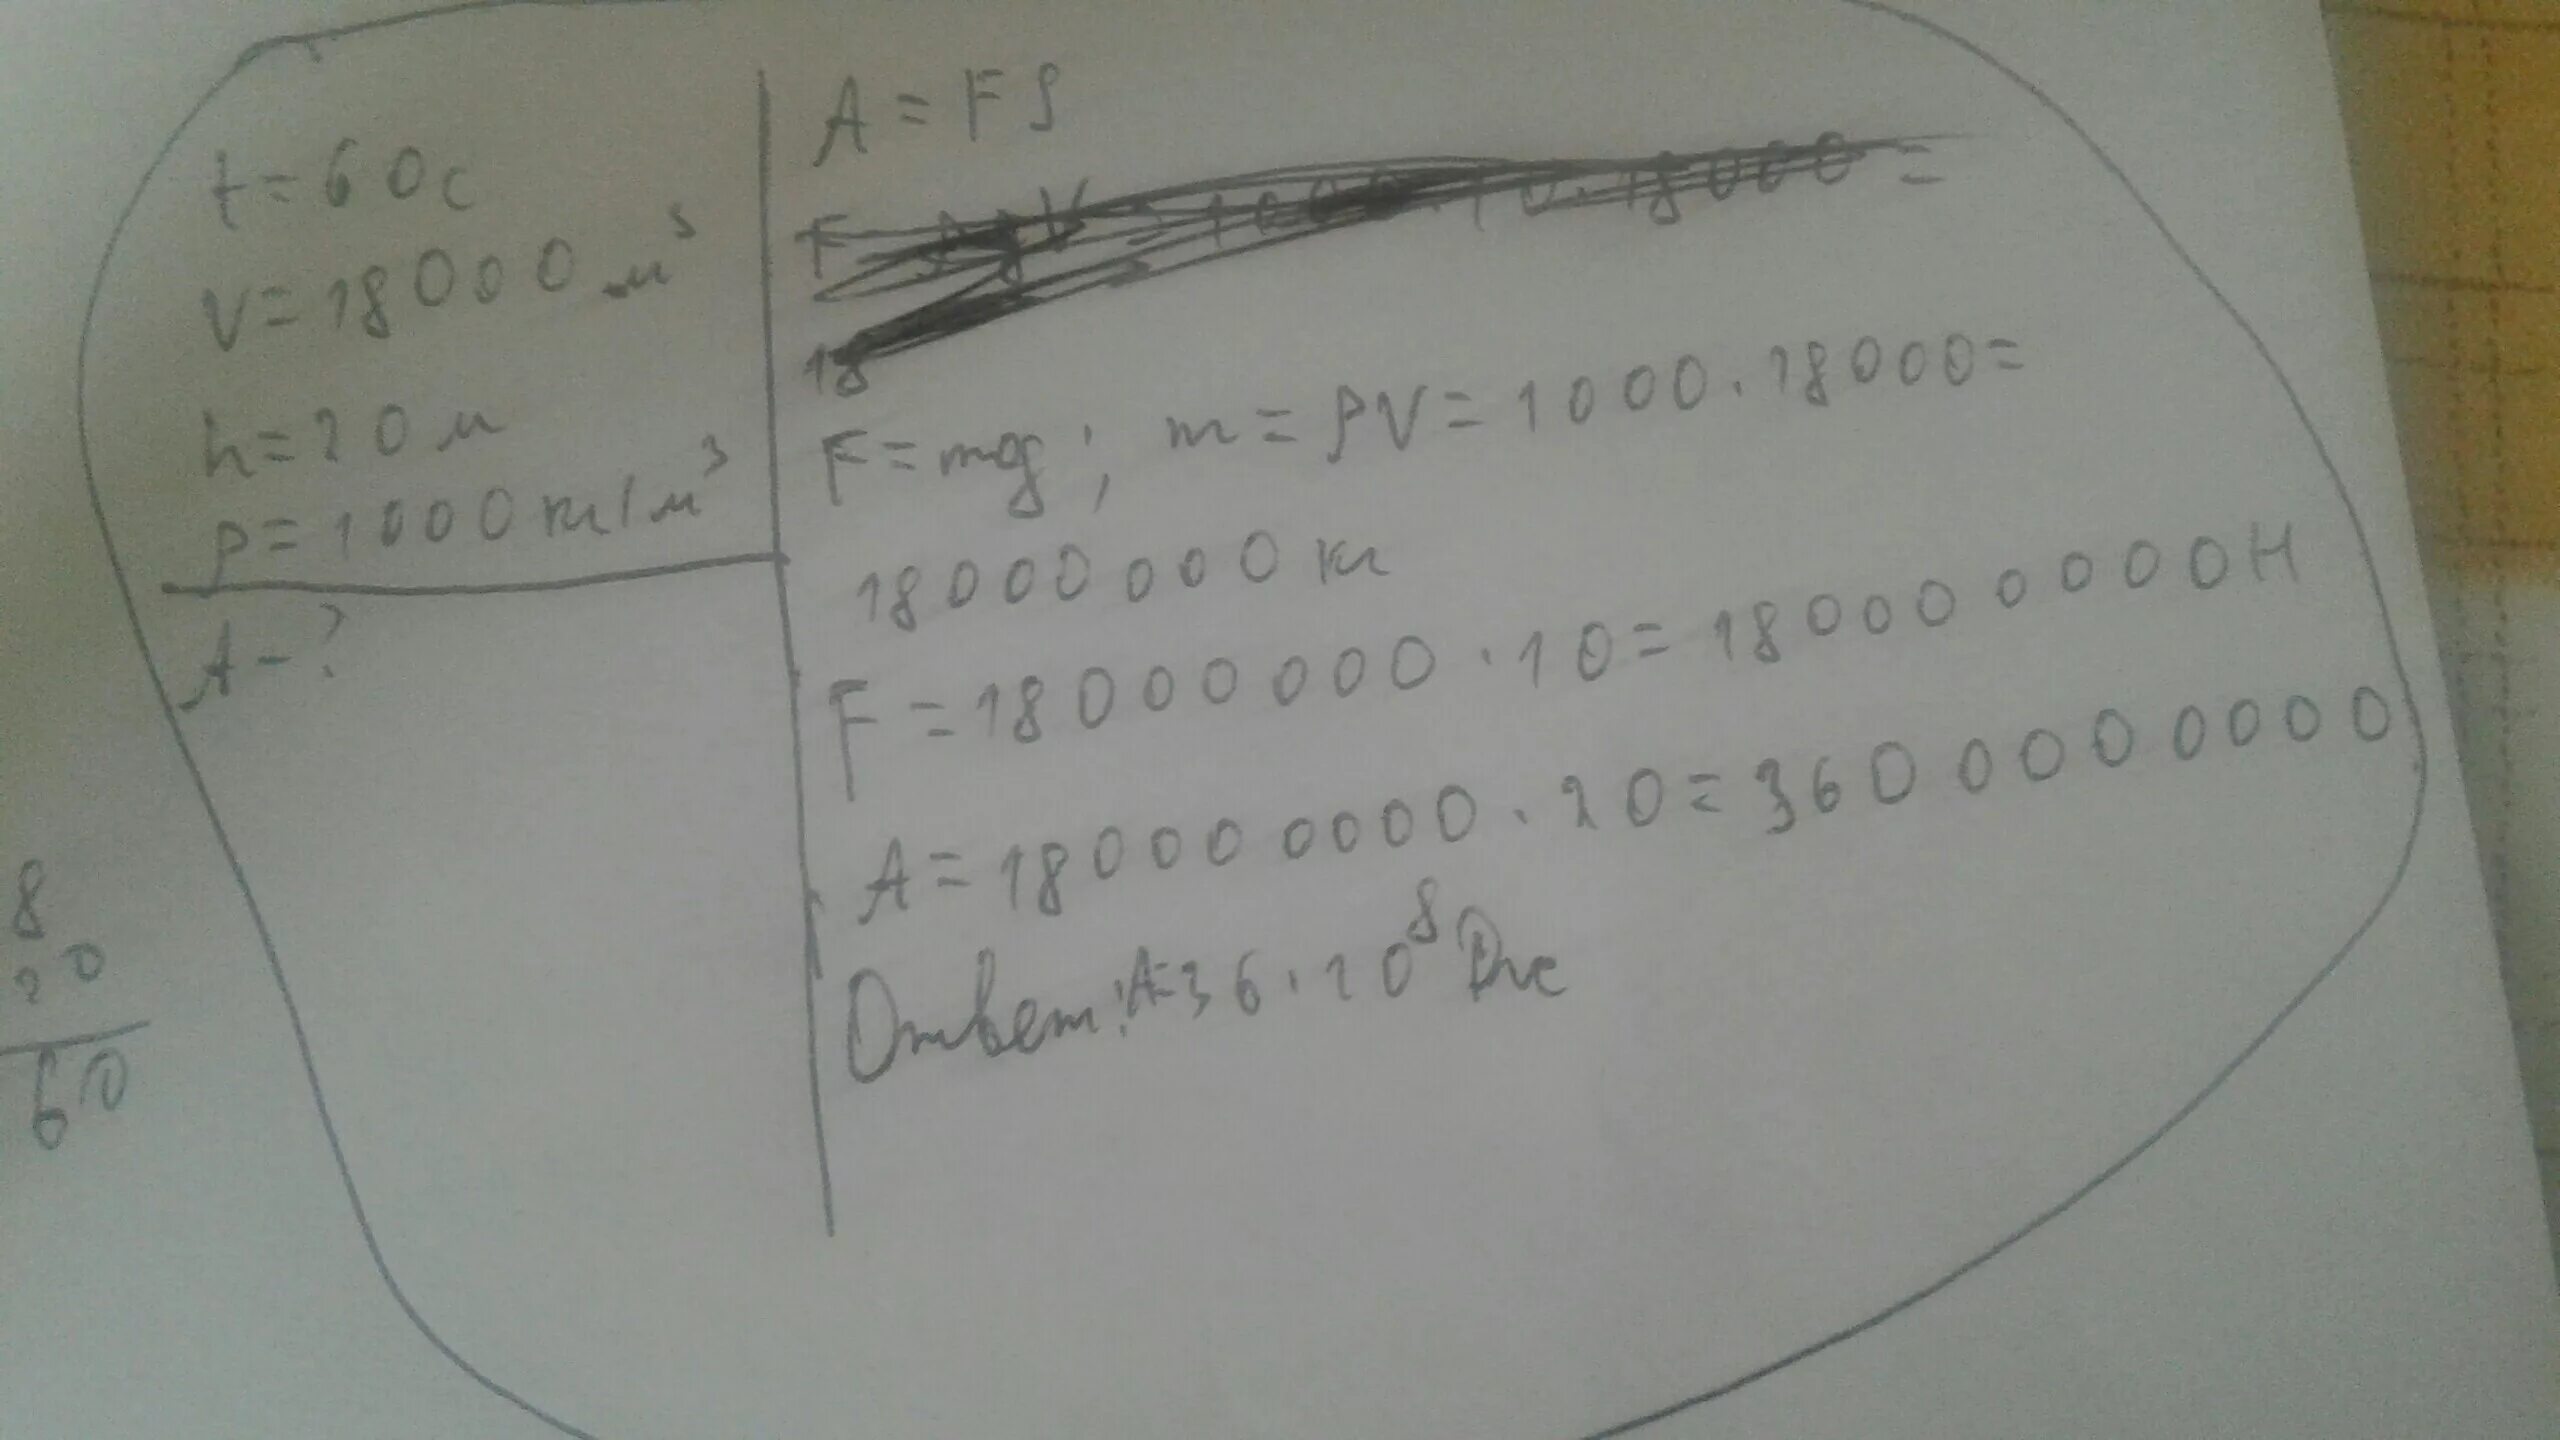 t = 60с
V = 18000 м³
h = 20 м
ρ = 1000 кг/м³
A - ?
A = FS
F = ρgV = 1000 · 10 · 18000 =
18
F = mg ; m = ρV = 1000 · 18000 =
18000000 кг
F = 18000000 · 10 = 180000000Н
A = 180000000 · 20 = 3600000000
Ответ: A = 36 · 10⁸ Дж
8
20
60